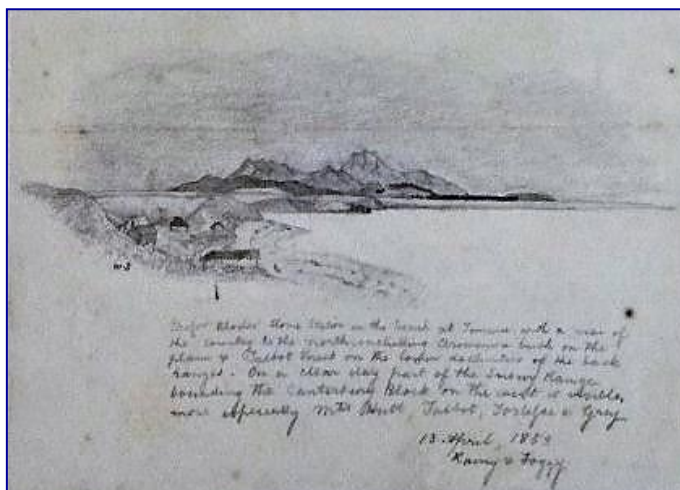 Station on the beach at Timaru with a view of
the country to the north including Arowenua bush on the
plain & Talbot Forest on the lower declivities of the back
ranges. On a clear day part of the Snowy Range
bounding the Canterbury Block on the west is visible,
more especially Mts Hutt, Talbot, Torlesse & Grey
13. April, 1859
Rainy & Foggy